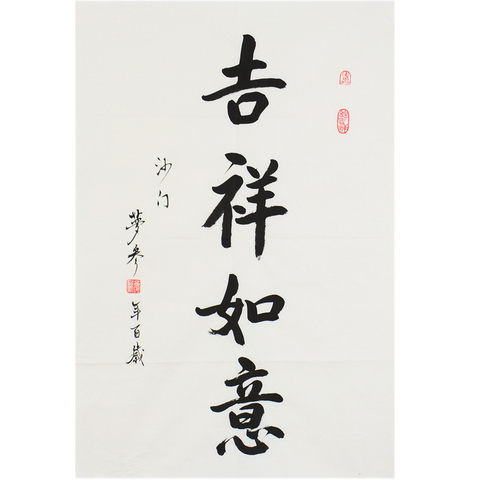 吉祥如意
沙门
梦参
年百歲